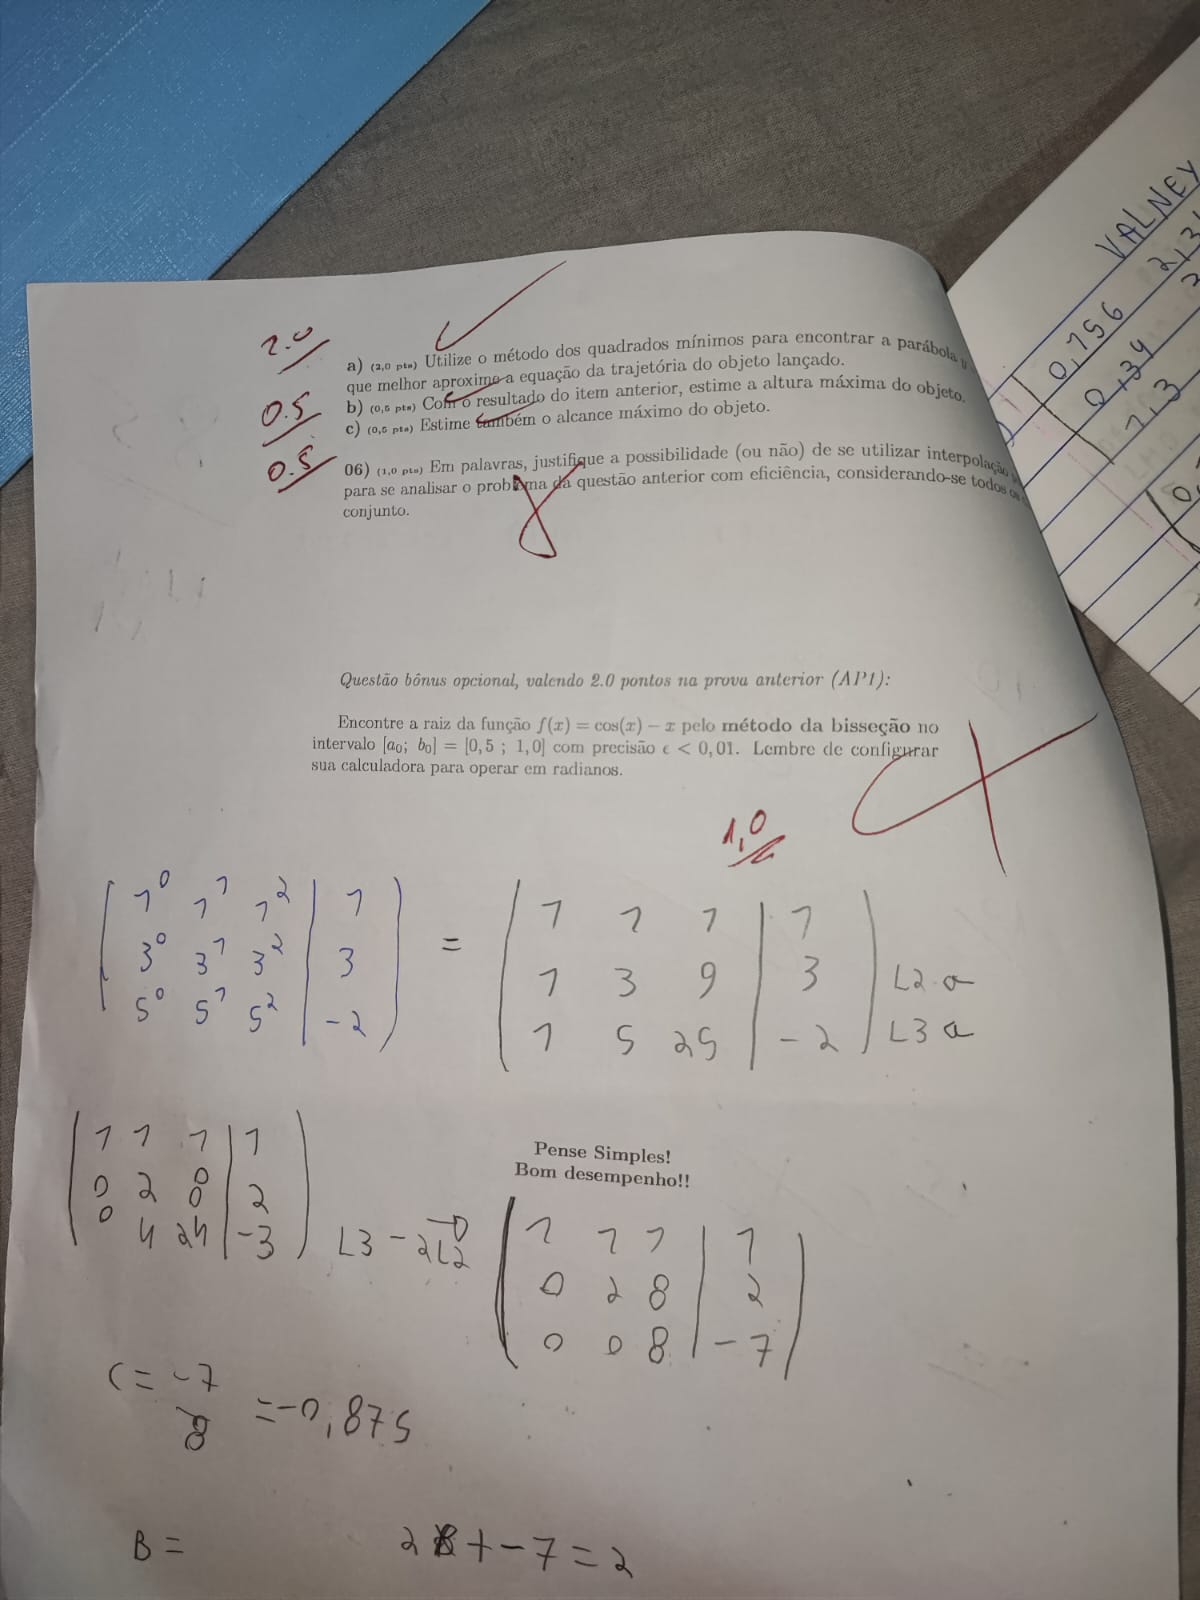 VALNEY
0,156 2,31
0,34
1,3
2.0
a) (2,0 pts) Utilize o método dos quadrados mínimos para encontrar a parábola
que melhor aproxime a equação da trajetória do objeto lançado.
0.5
b) (0,5 pts) Com o resultado do item anterior, estime a altura máxima do objeto.
0.5
c) (0,5 pts) Estime também o alcance máximo do objeto.
06) (1,0 pts) Em palavras, justifique a possibilidade (ou não) de se utilizar interpolação
para se analisar o problema da questão anterior com eficiência, considerando-se todos os
conjunto.
Questão bônus opcional, valendo 2.0 pontos na prova anterior (AP1):
Encontre a raiz da função f(x) = cos(x) − x pelo método da bisseção no
intervalo [a₀; b₀] = [0,5 ; 1,0] com precisão ϵ < 0,01. Lembre de configurar
sua calculadora para operar em radianos.
1,0
1⁰ 1¹ 1² | 1 = 1 1 1 | 1
3⁰ 3¹ 3² | 3 1 3 9 | 3 L2
5⁰ 5¹ 5² | -2 1 5 25 | -2 L3
Pense Simples!
Bom desempenho!!
1 1 1 | 1
0 2 | 2
0 4 24 | -3 L3 - 2L2
1 1 1 | 1
0 2 8 | 2
0 0 8 | -7
C = -7/8 = -0,875
B = 2 + -7 = 2